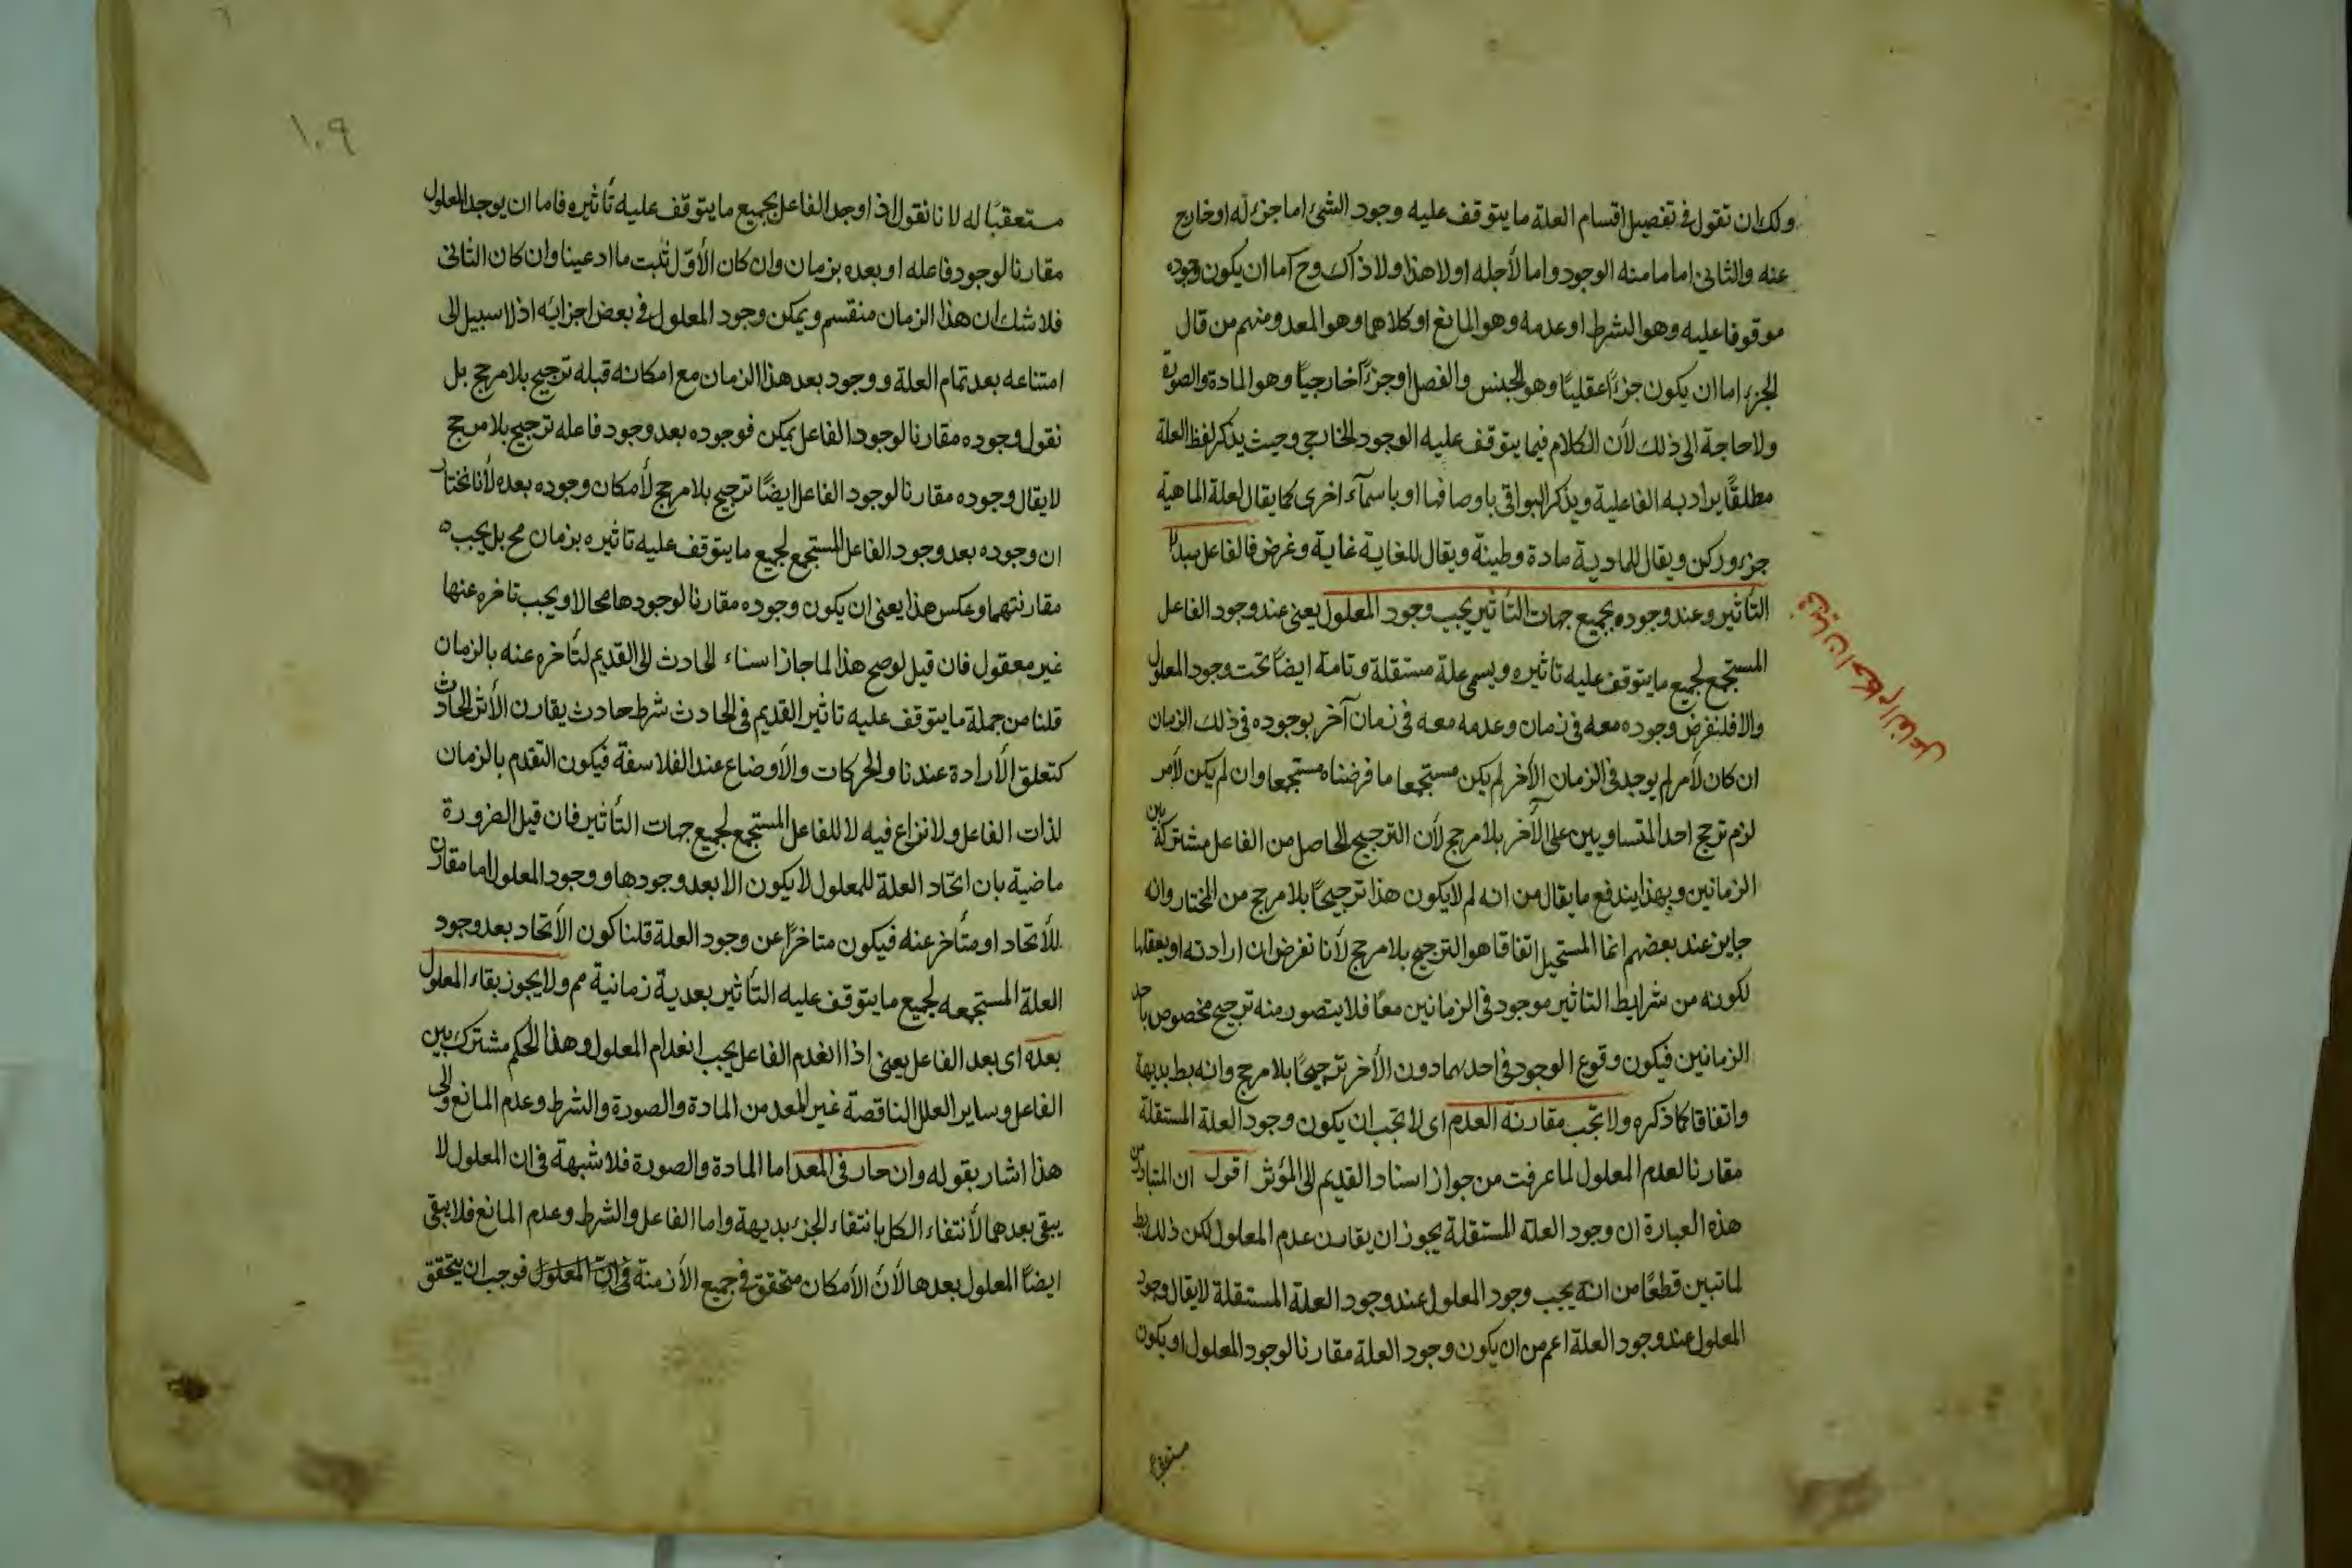 ولك ان تقول فى تفصيل اقسام العلة ما يتوقف عليه وجود الشئ اما جزء له او خارج
عنه والثانى اما ما منه الوجود واما لأجله او لا هذا ولا ذاك وح اما ان يكون وجوده
موقوفا عليه وهو الشرط او عدمه وهو المانع او كلاهما وهو المعد ومنهم من قال
الجزء اما ان يكون جزءًا عقليًا وهو الجنس والفصل او جزءًا خارجيًا وهو المادة والصورة
ولا حاجة الى ذلك لأن الكلام فيما يتوقف عليه الوجود الخارجى وحيث يذكر لفظ العلة
مطلقًا يراد به الفاعلية ويذكر البواقى باوصافها او باسمآء اخرى كما يقال لعلة الماهية
جزء وركن ويقال للمادية مادة وطينة ويقال للغاية غاية وغرض فالفاعل مبدأ
التأثير وعند وجوده بجميع جهات التأثير يجب وجود المعلول يعنى عند وجود الفاعل
المستجمع لجميع ما يتوقف عليه تاثيره ويسمى علة مستقلة وتامة ايضًا تحت وجود المعلول
والا فلنفرض وجوده معه فى زمان وعدمه معه فى زمان آخر بوجوده فى ذلك الزمان
ان كان لأمر لم يوجد فى الزمان الآخر لم يكن مستجمعا ما فرضناه مستجمعا وان لم يكن لأمر
لزم ترجح احد المتساويين على الآخر بلا مرجح لأن الترجيح الحاصل من الفاعل مشتركة بين
الزمانين وبهذا يندفع ما يقال من انه لم لا يكون هذا ترجيحًا بلا مرجح من المختار وانه
جايز عند بعضهم انما المستحيل اتفاقا هو الترجح بلا مرجح لأنا نفرض ان ارادته او تعقلها
لكونه من شرايط التاثير موجود فى الزمانين معًا فلا يتصور منه ترجيح مخصوص باحد
الزمانين فيكون وقوع الوجود فى احدهما دون الأخر ترجيحًا بلا مرجح وانه بط بديهة
واتفاقا كما ذكره ولا تجب مقارنة العدم اى لا تجب ان يكون وجود العلة المستقلة
مقارنا لعدم المعلول لما عرفت من جواز اسناد القديم الى المؤثر اقول ان المتبادر من
هذه العبارة ان وجود العلة المستقلة يجوز ان يقارن عدم المعلول لكن ذلك بط
لما تبين قطعًا من انه يجب وجود المعلول عند وجود العلة المستقلة لا يقال وجود
المعلول عند وجود العلة اعم من ان يكون وجود العلة مقارنا لوجود المعلول او يكون
احكام الفاعل
١٠٩
مستعقبًا له لانا نقول اذا وجد الفاعل بجميع ما يتوقف عليه تأثيره فاما ان يوجد المعلول
مقارنا لوجود فاعله او بعده بزمان وان كان الأول ثبت ما ادعينا وان كان الثانى
فلا شك ان هذا الزمان منقسم ويمكن وجود المعلول فى بعض اجزائه اذ لا سبيل الى
امتناعه بعد تمام العلة ووجود بعد هذا الزمان مع امكانه قبله ترجيح بلا مرجح بل
نقول وجوده مقارنا لوجود الفاعل يمكن فوجوده بعد وجود فاعله ترجيح بلا مرجح
لا يقال وجوده مقارنا لوجود الفاعل ايضًا ترجيح بلا مرجح لأمكان وجوده بعده لأنا نختار
ان وجوده بعد وجود الفاعل المستجمع لجميع ما يتوقف عليه تاثيره بزمان مح بل يجب
مقارنتهما وعكس هذا يعنى ان يكون وجوده مقارنا لوجودها محالا ويجب تاخره عنها
غير معقول فان قيل لو صح هذا لما جاز اسناد الحادث الى القديم لتأخره عنه بالزمان
قلنا من جملة ما يتوقف عليه تاثير القديم فى الحادث شرط حادث يقارن الأثر الحادث
كتعلق الأرادة عندنا والحركات والأوضاع عند الفلاسفة فيكون التقدم بالزمان
لذات الفاعل ولا نزاع فيه لا للفاعل المستجمع لجميع جهات التأثير فان قيل الضرورة
ماضية بان اتحاد العلة للمعلول لا يكون الا بعد وجودها ووجود المعلول اما مقارن
للأتحاد او متأخر عنه فيكون متاخرًا عن وجود العلة قلنا كون الأتحاد بعد وجود
العلة المستجمعه لجميع ما يتوقف عليه التأثير بعدية زمانية مم ولا يجوز بقاء المعلول
بعده اى بعد الفاعل يعنى اذا انعدم الفاعل يجب انعدام المعلول وهذا الحكم مشترك بين
الفاعل وساير العلل الناقصة غير المعد من المادة والصورة والشرط وعدم المانع والى
هذا اشار بقوله وان جاز فى المعد اما المادة والصورة فلا شبهة فى ان المعلول لا
يبقى بعدهما لأنتفاء الكل بانتفاء الجزء بديهة واما الفاعل والشرط وعدم المانع فلا يبقى
ايضًا المعلول بعدها لأن الأمكان متحقق فى جميع الأزمنة فى ان المعلول فوجب ان يتحقق